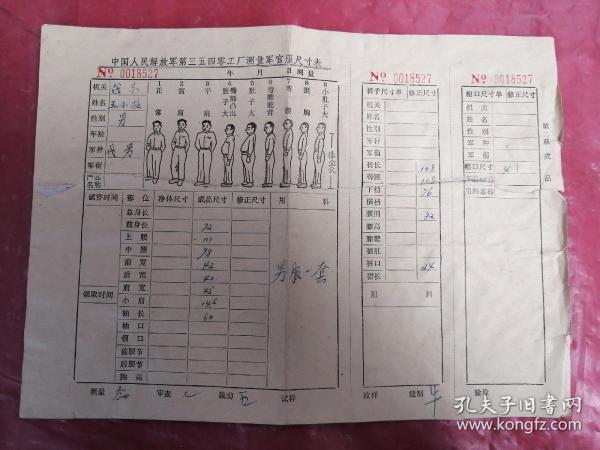 中国人民解放军第三五四零工厂测量军官服尺寸表
№ 0018527 年 月 日测量
机关
姓名 王小
性别 男
年龄
军种
军衔
产品名称
1 正常
2 溜肩
3 平肩
4 肚子大臀部凸出
5 肚子大
6 弯腰驼背
7 弯背
8 挺胸
9 小肚子大
体全长
试穿时间 部位 净体尺寸 成品尺寸 修正尺寸 用料
总身长
前身长 72
上腰 111
中腰 98
前宽 42
后宽 40
肩宽 45
领取时间 小肩 146
袖长 60
袖口
领口
前腰节
后腰节
胸高
男服一套
测量 审查 裁剪 试样
№ 0018527
裤子尺寸单 修正尺寸
机关
姓名
性别
年龄
军种
军衔
裤长 108
下裆 76
横裆
腰围 82
膝高
腿肥
腿肚
裤口 24
裙长
用料
纹样 缝制
№ 0018527
粗口尺寸单 修正尺寸
机关
姓名
性别
军种
军衔
用料名称
验检
第二联成品
孔夫子旧书网
kongfz.com